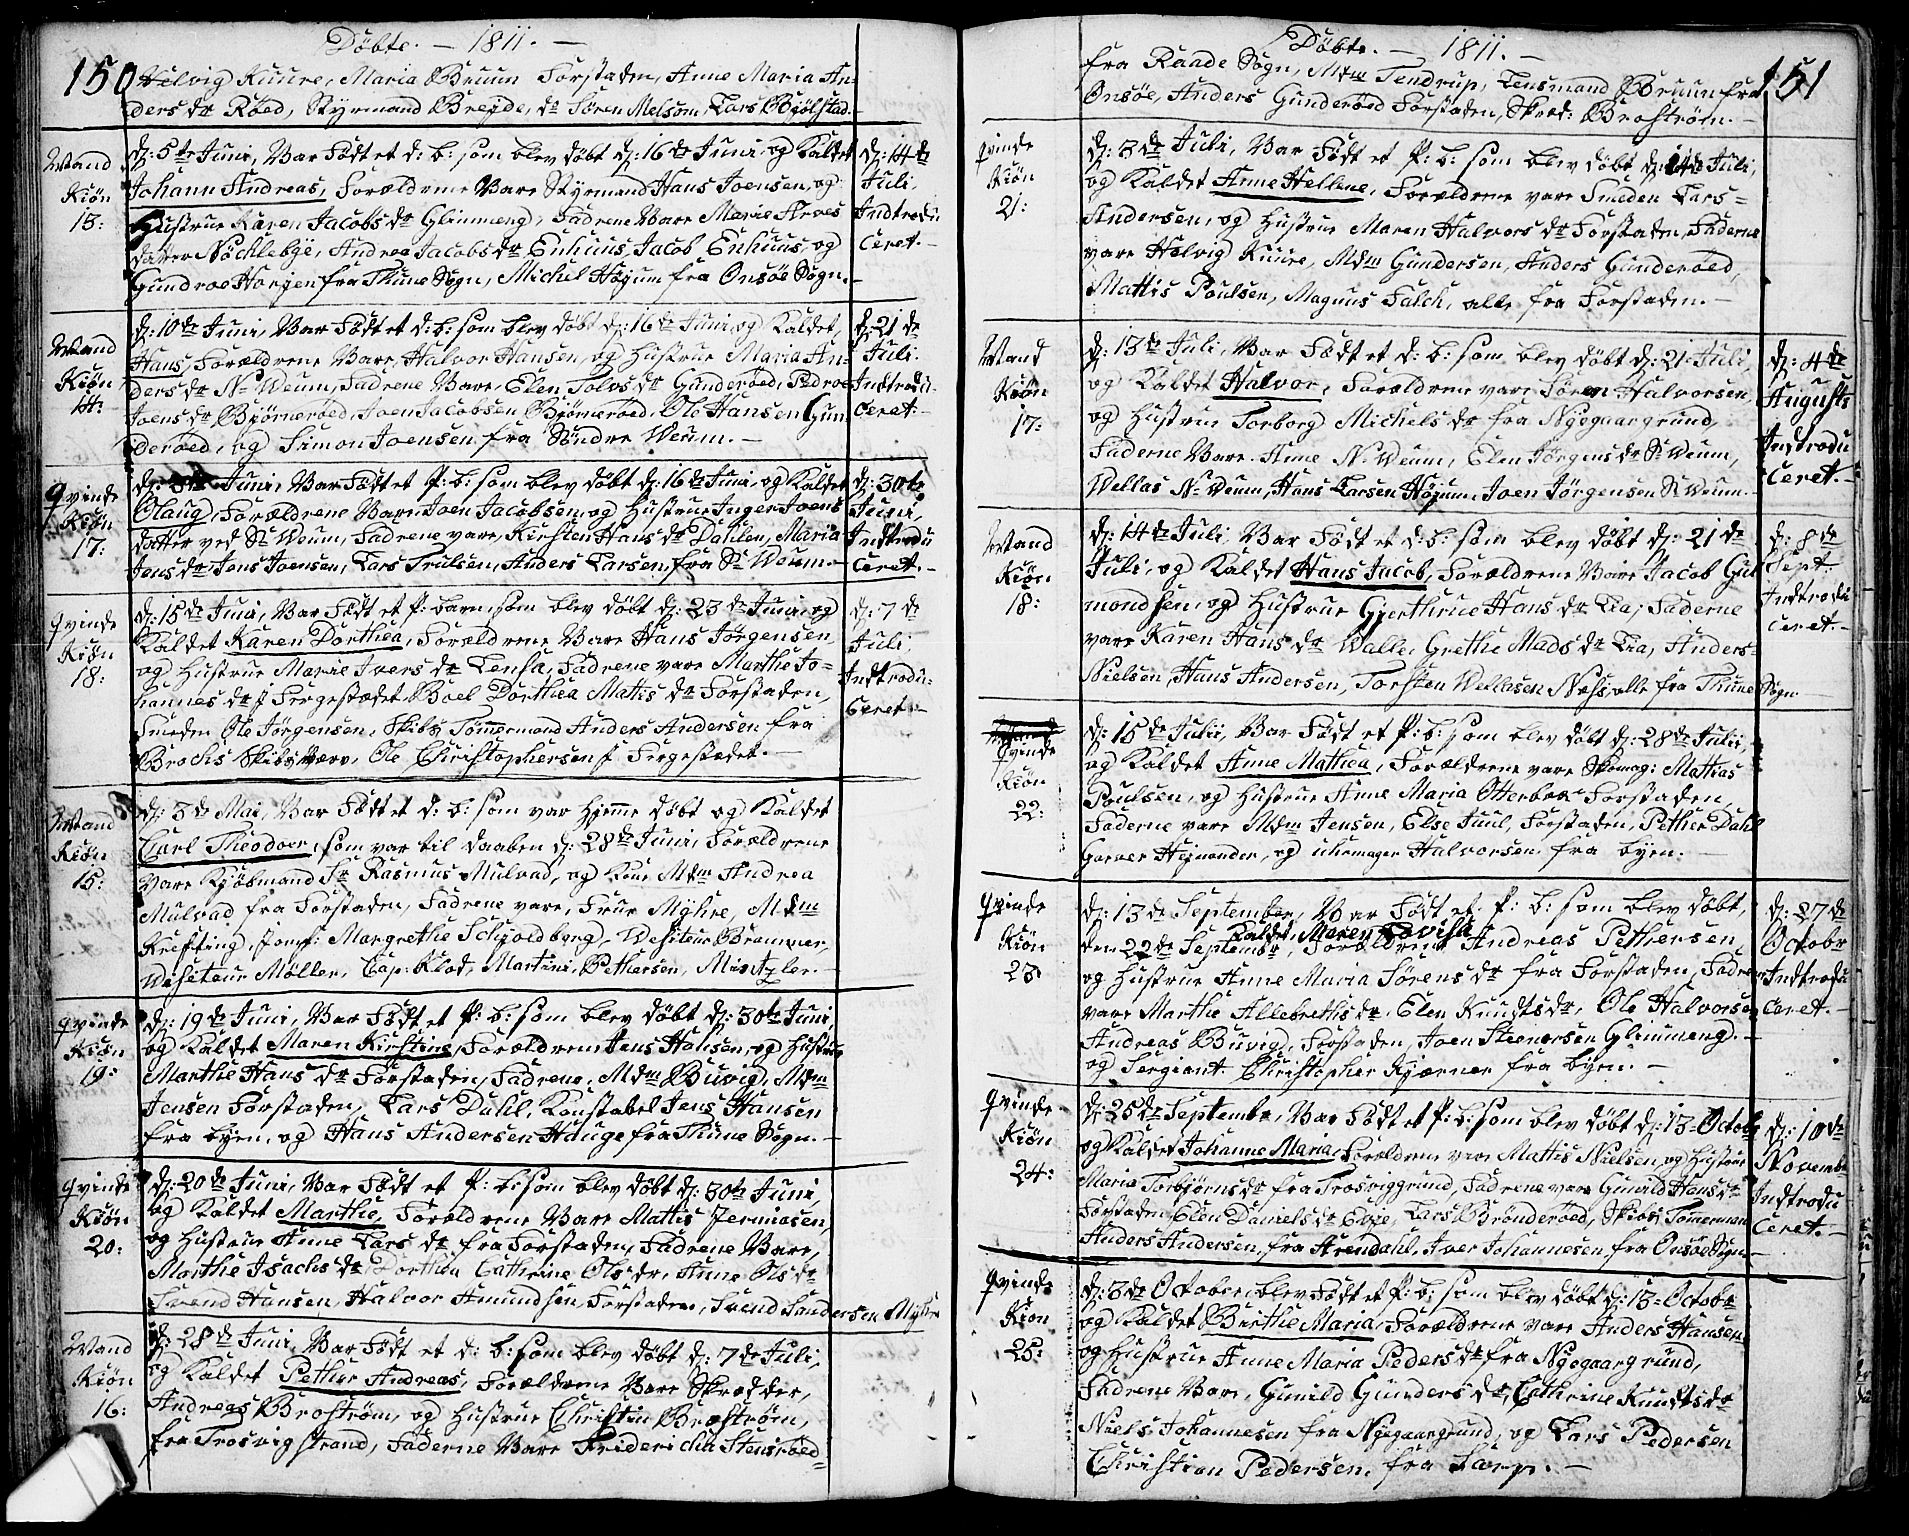 Døbte. — 1811. —
150
Helvig Kuure, Maria Bruun Forstaden, Anne Maria An-
ders dr Røed, Styrmand Breyde, do Søren Melsom, Lars Bjølstad.
Mand Kiøn 13:
d: 5te Juni, Var Født et d: b: som blev døbt d: 16de Juni, og Kaldet
Johann Andreas, Forældrene Vare Styrmand Hans Joensen, og
Hustrue Karen Jacobs dr Glimmeng, Fadrene Vare Marie Arves
datter Nøchlebye, Andrea Jacobs dr Enhuus, Jacob Enhuus, og
Gundroe Horgen fra Thune Sogn, Michel Høyum fra Onsøe Sogn.
d: 14de Juli, Indtrodu ceret. —
Mand Kiøn 14:
d: 10de Juni, Var Født et d: b: som blev døbt d: 16de Juni, og Kaldet,
Hans, Forældrene Vare, Halvor Hansen, og Hustrue Maria An-
ders dr N: Weum, Fadrene Vare, Elen Tolvs dr Gunderøed, Pedroe
Joens dr Bjørnerøed, Joen Jacobsen Bjørnerøed, Ole Hansen Gun
derøed, og Simon Joensen fra Søndre Weum. —
d: 21de Juli. Indtrodu- ceret. —
Qvinde Kiøn 17:
d: Juni, Var Født et P: b: som blev døbt d: 16de Juni, og Kaldet
Olaug, Forældrene Vare Joen Jacobsen, og Hustrue Inger Joens
datter ved S: Weum, Fadrene vare, Kirsten Hans dr Dahlen, Maria
Jens dr, Jens Joensen, Lars Trulsen, Anders Larsen, fra S: Weum.
d: 30te Juni, Indtrodu ceret. —
Qvinde Kiøn 18:
d: 15de Juni, Var Født et P: barn, som blev døbt d: 23de Juni, og
Kaldet Karen Dorthea, Forældrene Vare Hans Jørgensen,
og Hustrue Marie Ivers dr Lensa, Fadrene vare Marthe Jo-
hannes dr f Fergestædet, Boel Dorthea Mattis dr Forstaden,
Smeden Ole Jørgensen, Skibs Tømmermand Anders Andersen fra
Brochs Skibsværv, Ole Christophersen f Fergestædet. —
d: 7de Juli, Indtrodu- ceret. —
Mand Kiøn 15:
d: 3de Mai, Var Født et d: b: som var Hjemme døbt og Kaldet
Carl Theodoer, som var til Daaben d: 28de Juni, Forældrene
Vare Kjøbmand Sr Rasmus Mulvad, og Kone Mdm Andrea
Mulvad, fra Forstaden, Fadrene vare, Frue Myhre, Mdm
Krefting, Jomf: Margrethe Schjoldborg, Visiteur Bremmer,
Visiteur Møller, Cap: Klod, Martini, Pethersen, Mintzler. —
Qvinde Kiøn 19:
d: 19de Juni, Var Født et P: b: som blev døbt d: 30te Juni,
og Kaldet Maren Kirstine, Forældrene Jens Hansen, og Hustrue
Marthe Hans dr Forstaden, Fadrene, Mdm Buvig, Mdm
Jensen Forstaden, Lars Dahl, Konstabel Jens Hansen
fra byen, og Hans Andersen Hauge fra Thune Sogn. —
Qvinde Kiøn 20:
d: 20de Juni, Var Født et P: b: som blev døbt d: 30te Juni,
og Kaldet Marthe, Forældrene Vare Mattis Jermiasen,
og Hustrue Anne Lars dr fra Forstaden, Fadrene Vare,
Marthe Isachs dr Dorthea Cathrine Ols dr, Anne Ols dr
Svend Hansen, Halvor Amundsen, Forstaden, Svend Sandersen Myhre
Mand Kiøn 16:
d: 28de Juni, Var Født et d: b: som blev døbt d: 7de Juli,
og Kaldet Pether Andreas, Forældrene Vare Skrædder,
Andreas Brostrøm, og Hustrue Christin Brostrøm,
fra Trosvigstrand, Faderne Vare Fridericha Steusrøed
Døbte. — 1811. —
151
fra Raade Sogn, Mdm Tendrup, Lensmand Bruun fra
Onsøe, Anders Gunderøed Forstaden, Skræd: Brostrøm. —
Qvinde Kiøn 21:
d: 3de Juli, Var Født et P: b: som blev døbt d: 14de Juli,
og Kaldet Anne Helene, Forældrene vare Smeden Lars
Andersen, og Hustrue Maren Halvors dr Forstaden, Faderne
vare Helvig Kuure, Mdm Gundersen, Anders Gunderøed,
Mattis Poulsen, Magnus Falch, alle fra Forstaden. —
Mand Kiøn 17:
d: 13de Juli, Var Født et d: b: som blev døbt d: 21 Juli,
og Kaldet Halvor, Forældrene vare Søren Halvorsen,
og Hustrue Torborg Michels dr fra Nygaargrund,
Faderne Vare Anne N: Weum, Elen Jørgens dr S: Weum,
Wellas N: Weum, Hans Larsen Høyum, Joen Jørgensen S: Weum. —
d: 4de Augusts Indtrodu ceret. —
Mand Kiøn 18:
d: 14de Juli, Var Født et d: b: som blev døbt d: 21de
Juli, og Kaldet Hans Jacob, Forældrene Vare Jacob Gul
mondsen, og Hustrue Gjerthrue Hans dr Lia, Faderne
vare Karen Hans dr Walle, Grethe Mads dr Lia, Anders
Nielsen, Hans Andersen, Torsten Wellasen Næss, alle fra Thune Sogn
d: 8de Sept: Indtrodu ceret. —
Qvinde Kiøn 22:
d: 15de Julii, Var Født et P: b: som blev døbt d: 28de Julii,
og Kaldet Anne Mathea, Forældrene vare Skomag: Mathias
Poulsen, og Hustrue Anne Maria Otterbek Forstaden,
Faderne vare Mdm Jensen, Else Juul, Forstaden, Pether Dahl
Garver Hejmander, og uhrmager Halvorsen fra byen. —
Qvinde Kiøn 23
d: 13de September, Var Født et P: b: som blev døbt,
Kaldet, Maren Lovisa
den 22de September, Forældrene Andreas Pethersen,
og Hustrue Anne Maria Sørens dr fra Forstaden, Fadrene
vare Marthe Allebrethis dr, Elen Knudts dr, Ole Halvorsen
Andreas Buvig, Forstaden, Joen Steenersen Glimmeng. —
og Sergiant Christopher Kjærner fra byen. —
d: 27de Octobr Indtrodu ceret. —
Qvinde Kiøn 24:
d: 25de Septembr, Var Født et P: b: som blev døbt d: 13 Octobr
og Kaldet Johanne Maria, Forældrene vare Mattis Nielsen, og Hustrue
Maria Torbjørns dr fra Trosviggrund, Fadrene vare Gunild Hans dr
Forstaden, Elen Daniels dr Evje, Lars Brønderøed, Skibs Tømerman
Anders Andersen, fra Arendahl, Iver Johannesen, fra Onsøe Sogn —
d: 10de November Indtrodu ceret. —
Qvinde Kiøn 25:
d: 3de October, blev Født et P: b: som blev døbt d: 13 Octobr
og Kaldet Birthe Maria, Forældrene vare Anders Hansen
og Hustrue Anne Maria Peders dr fra Nygaargrund,
Fadrene Vare, Gunild Gunders dr, Cathrine Knudts dr
Niels Johannesen fra Nygaargrund, og Lars Pedersen
Christian Pedersen, fra Torp. —